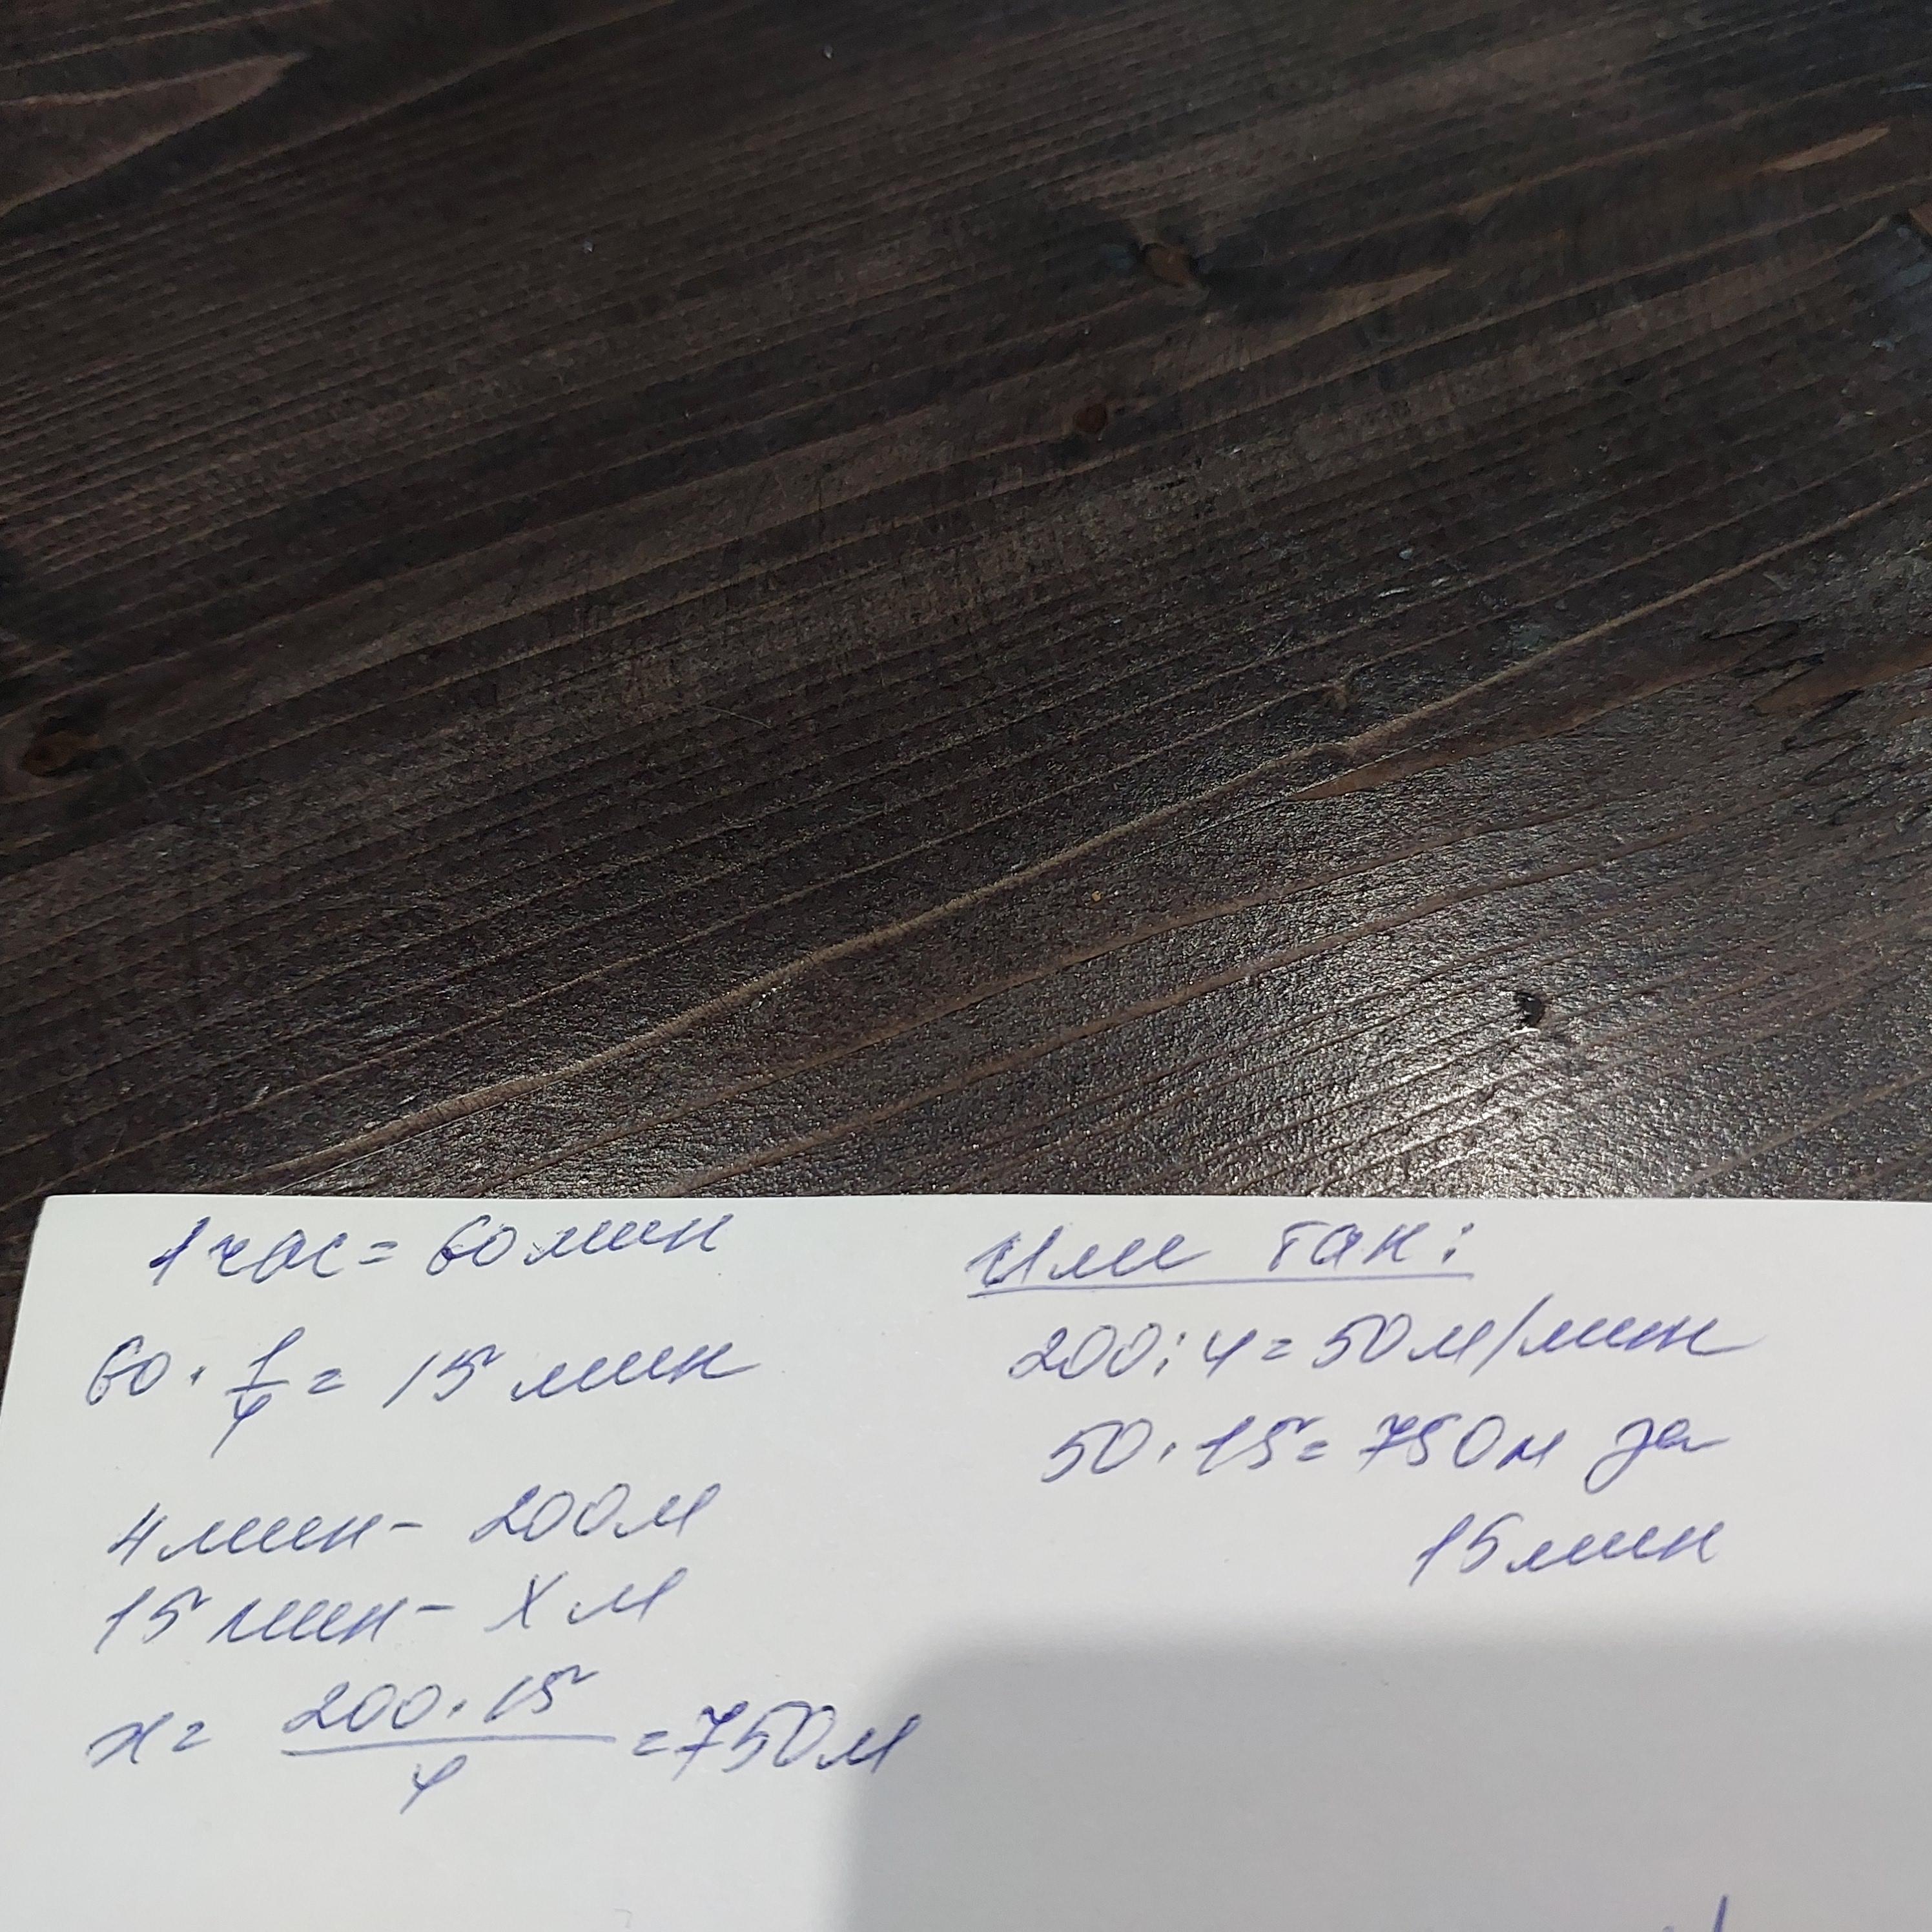 1 час = 60 мин
60 · 1/4 = 15 мин
4 мин - 200 м
15 мин - X м
x = 200 · 15 / 4 = 750 м
Или так:
200 : 4 = 50 м/мин
50 · 15 = 750 м за
15 мин